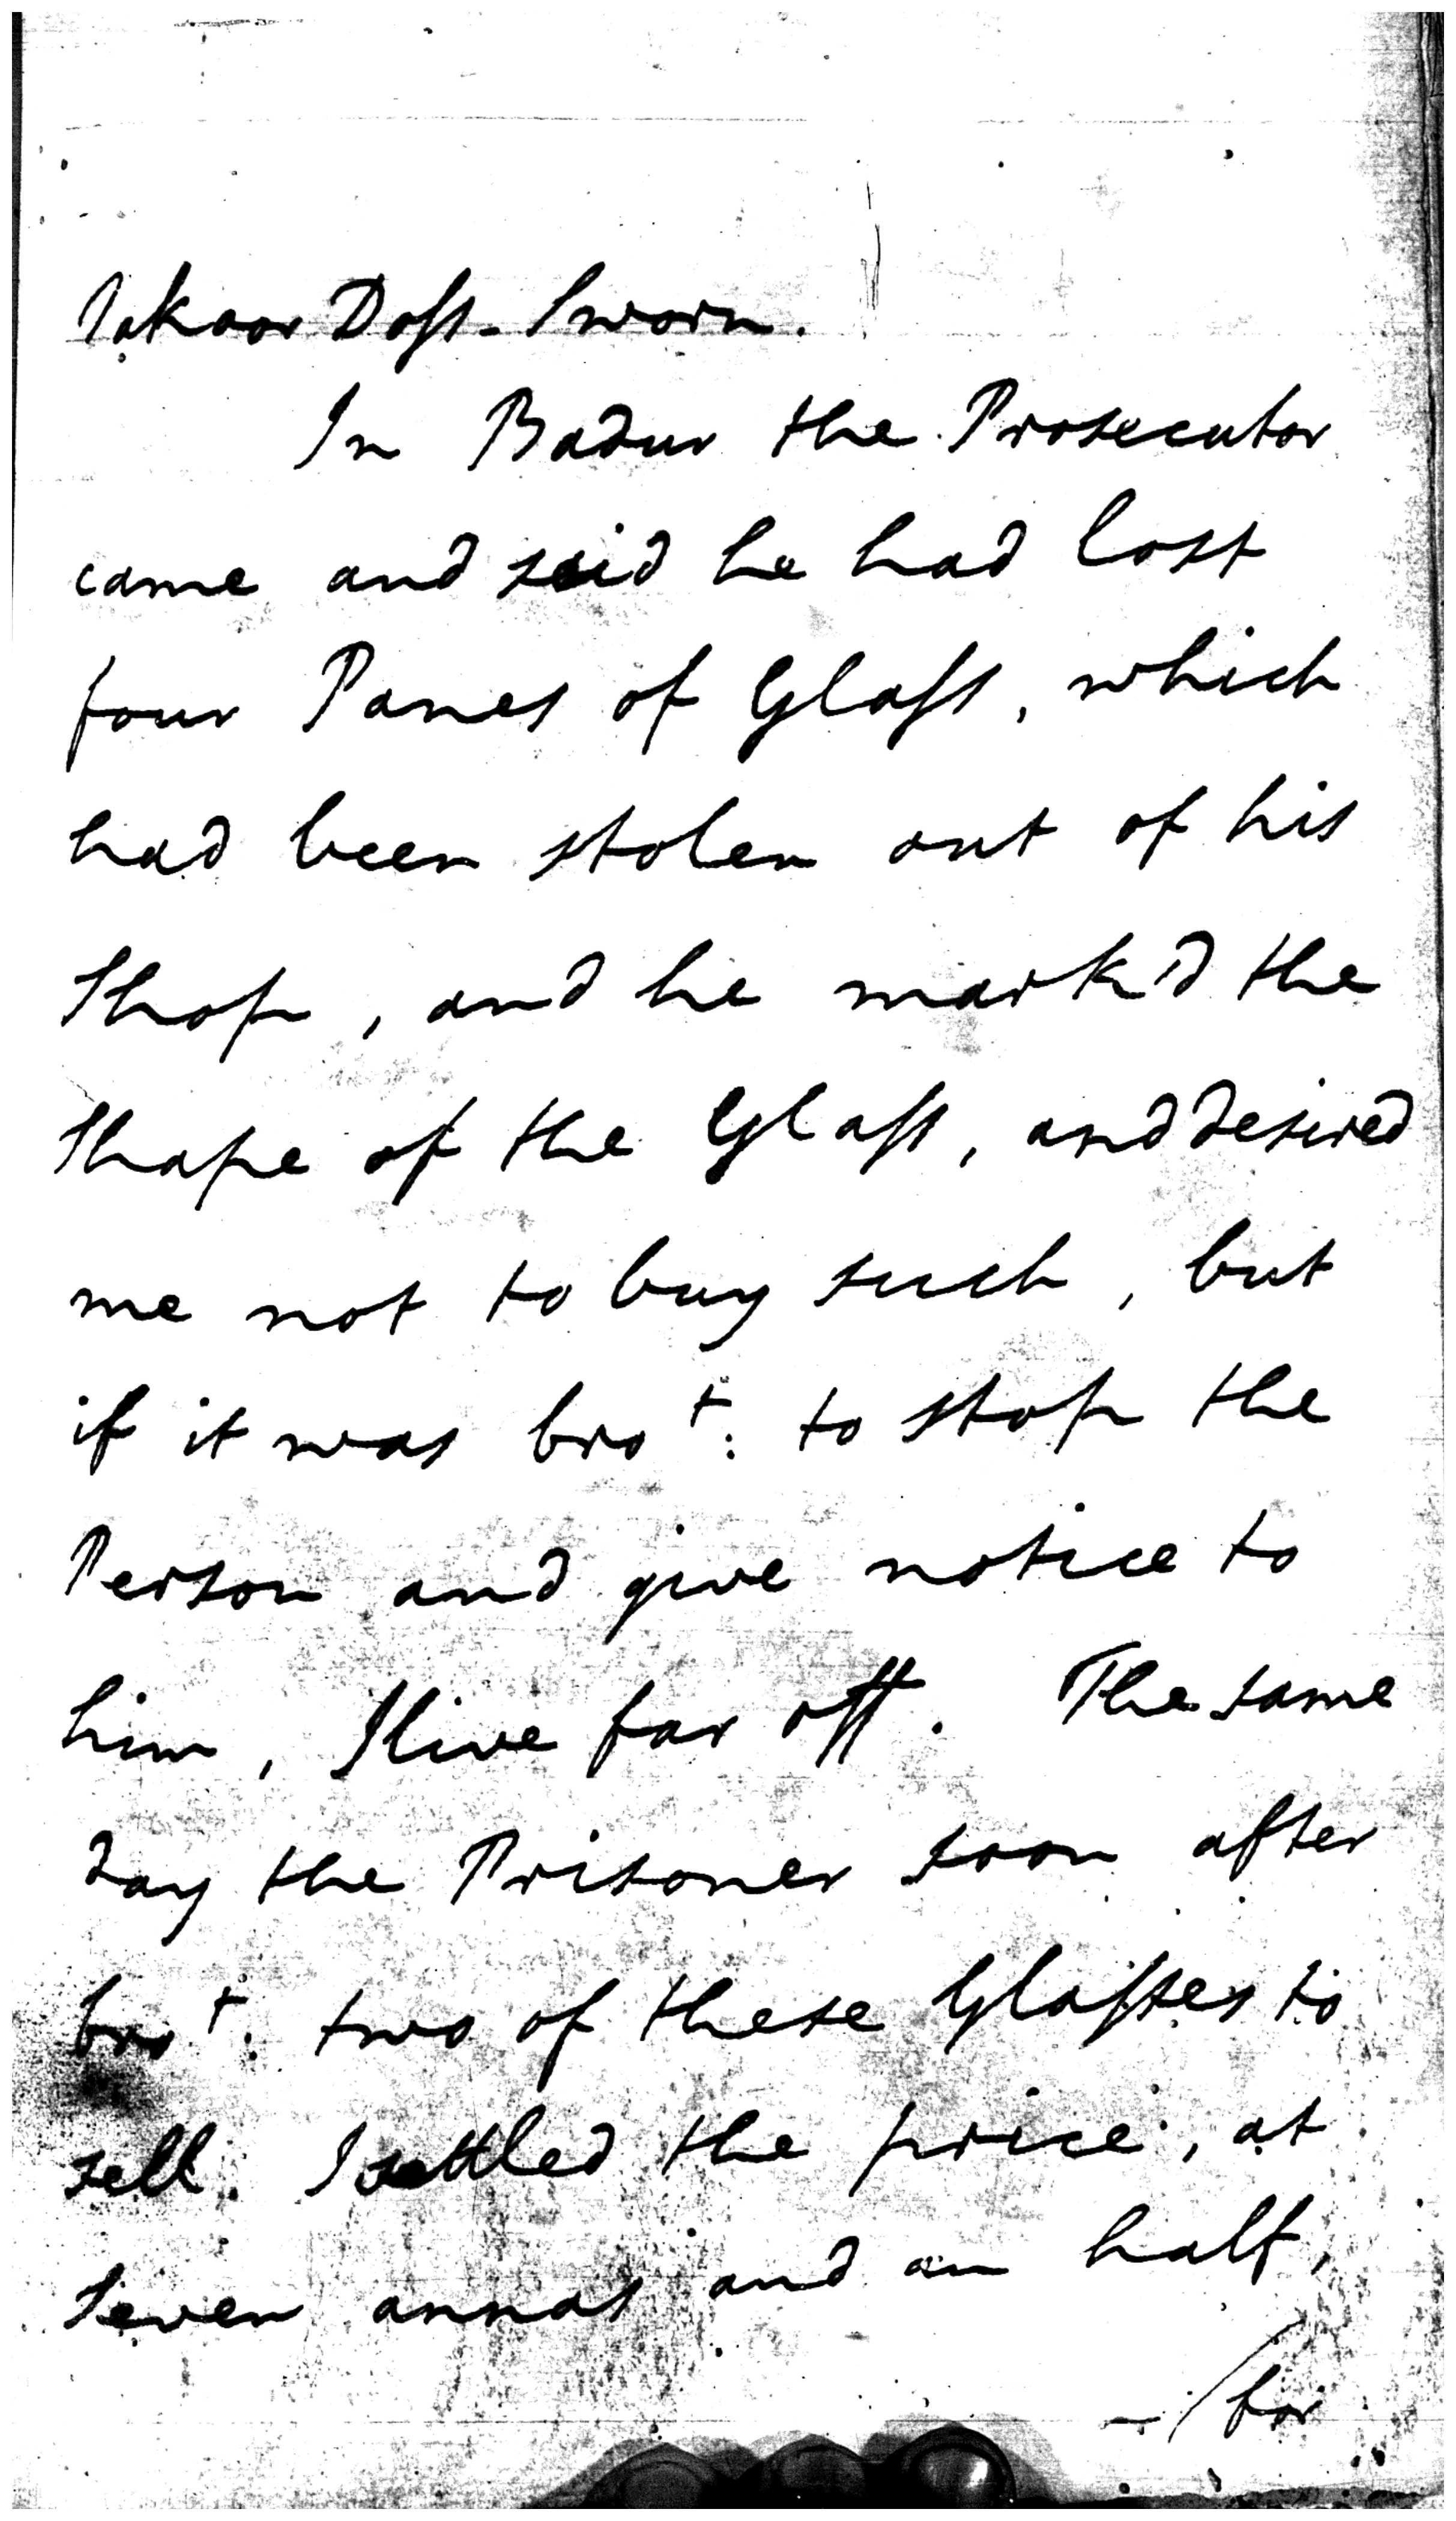 Takoor Doss - Sworn.
In Badur the Prosecutor
came and said he had lost
four Panes of Glass, which
had been stolen out of his
Shop, and he mark'd the
Shape of the Glass, and desired
me not to buy such, but
if it was bro^t: to stop the
Person and give notice to
him, I live far off. The same
day the Prisoner soon after
bro^t. two of these Glasses to
sell. I settled the price, at
Seven annas and an half,
for